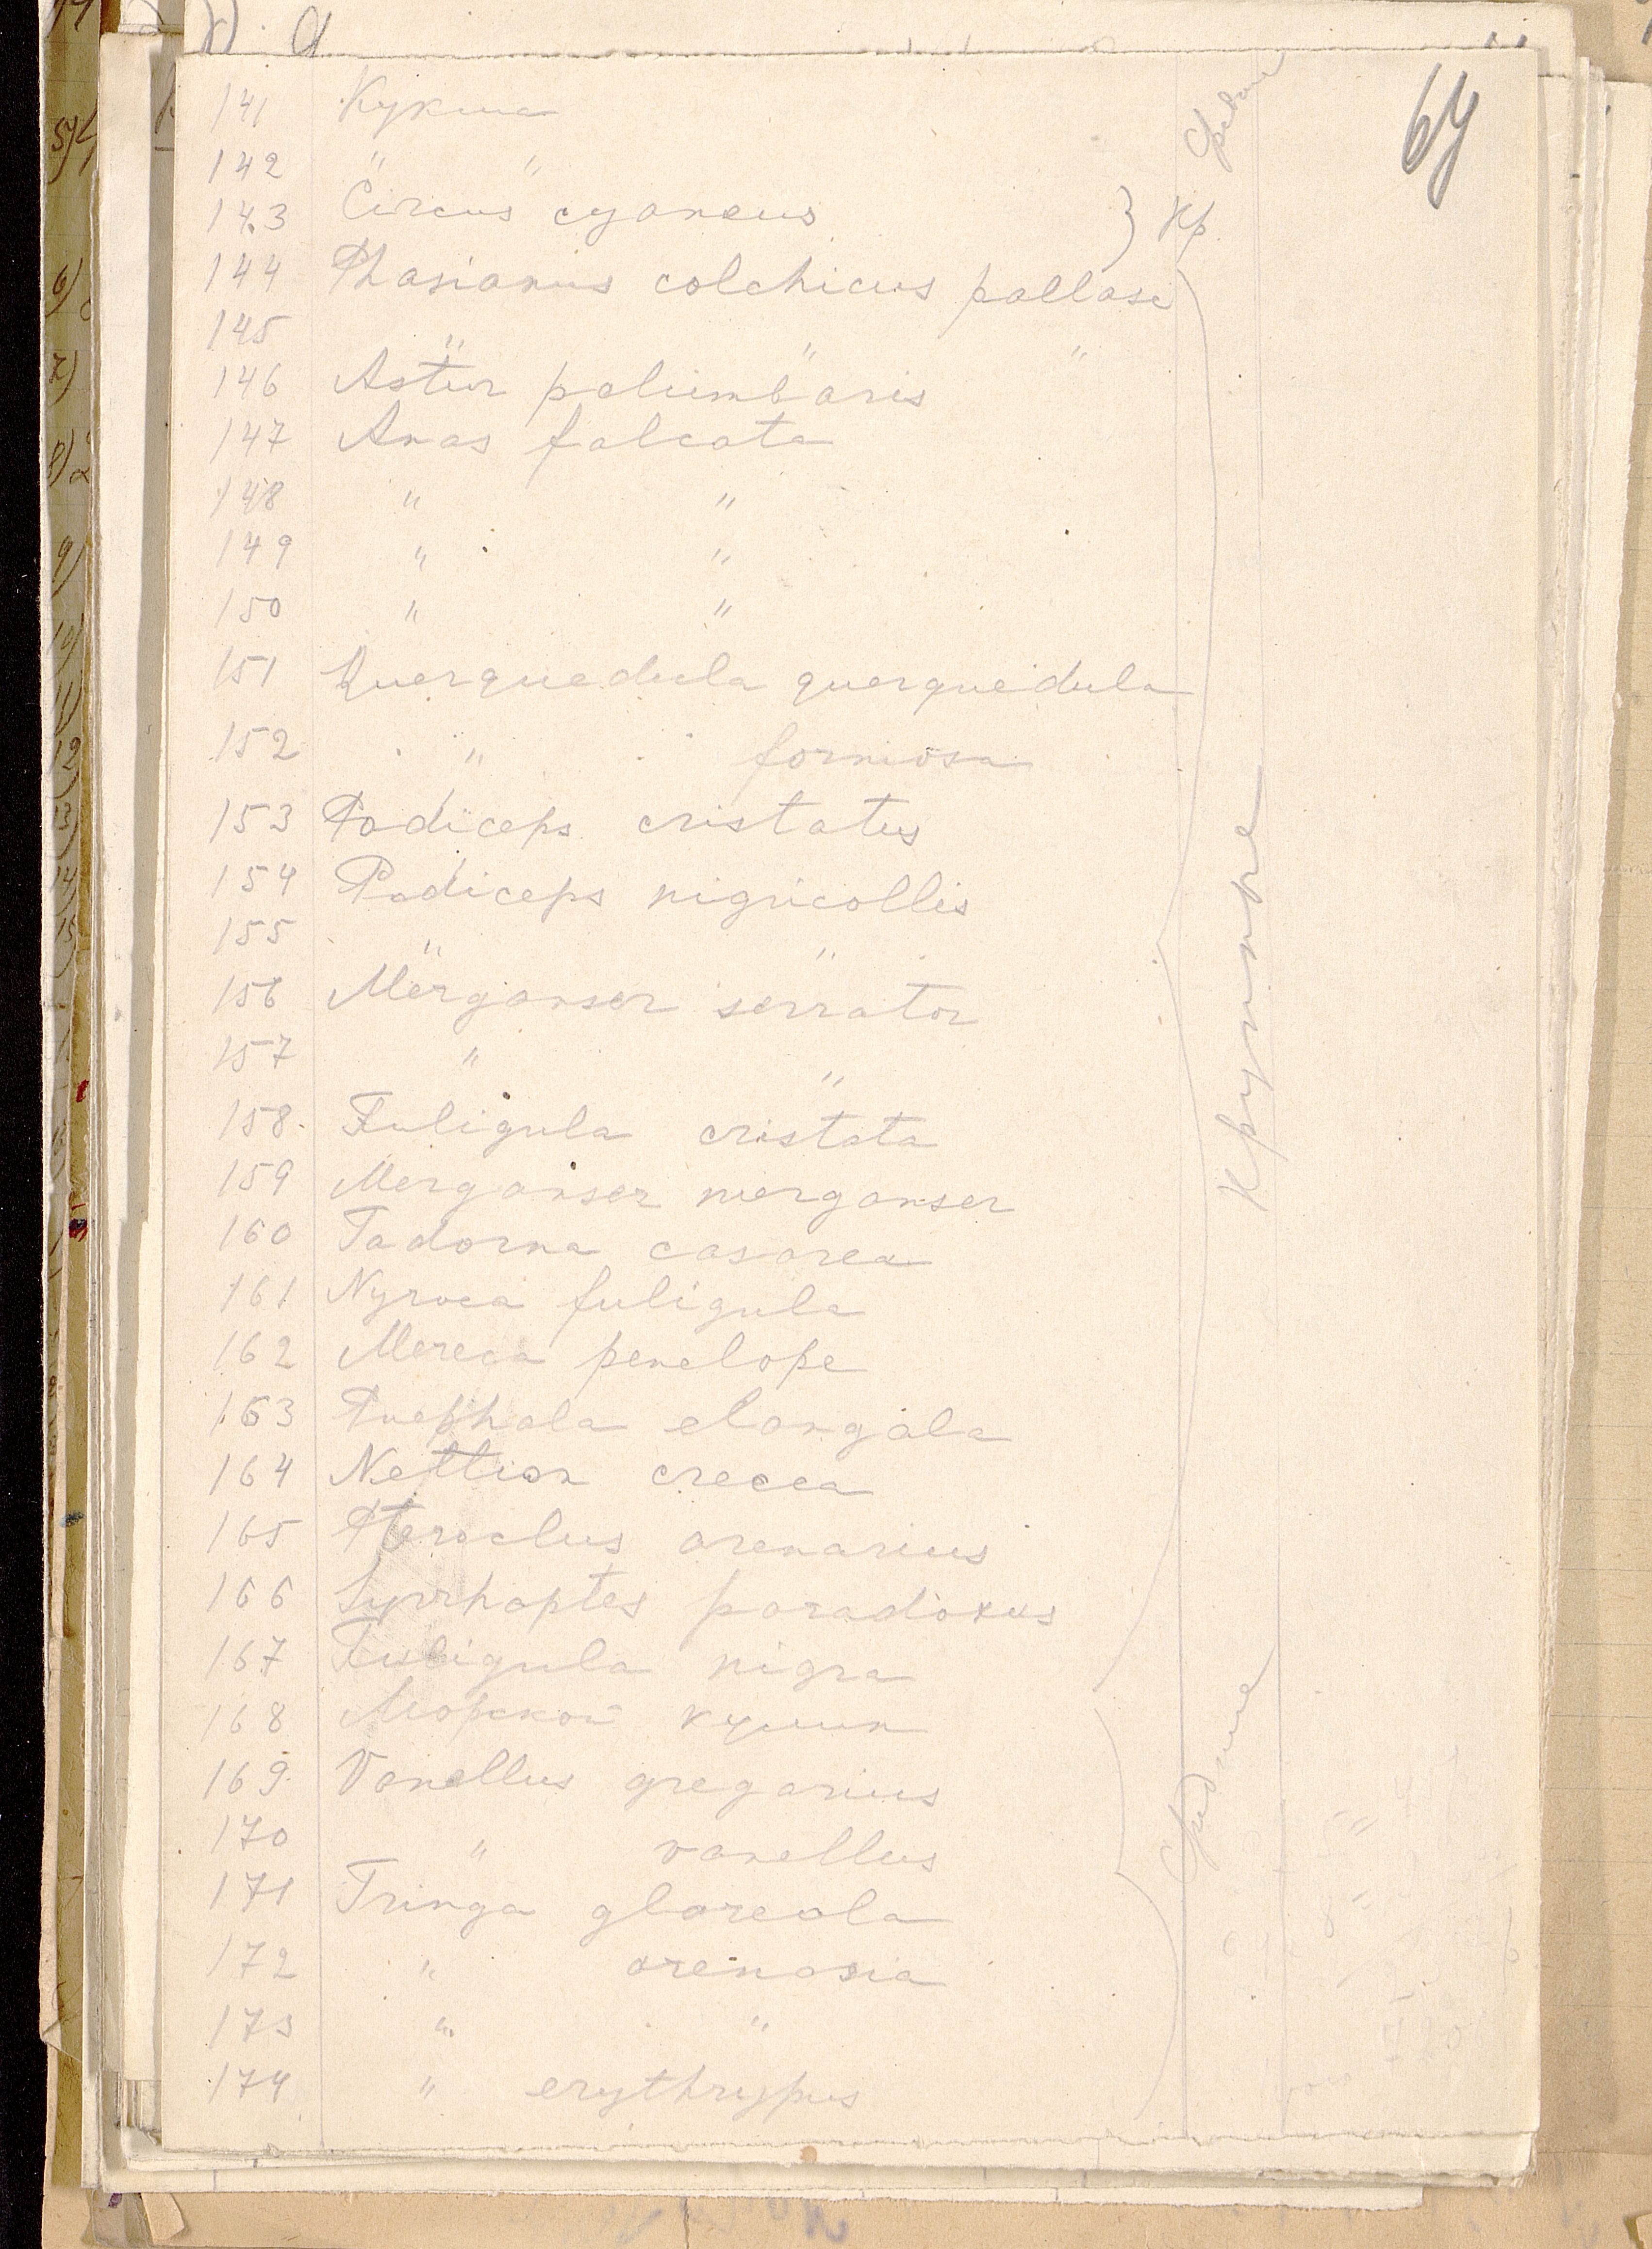 64
141 Кукша
142 " "
143 Circus cyaneus } Кр.
144 Phasianus colchicus pallasi
145 " " "
146 Astur palumbaris
147 Anas falcata
148 " "
149 " "
150 " "
151 Querquedula querquedula
152 " formosa
153 Podiceps cristatus
154 Podiceps nigricollis
155 " "
156 Merganser serrator
157 " "
158 Fuligula cristata
159 Merganser merganser
160 Tadorna casarea
161 Nyroca fuligula
162 Mereca penelope
163 elangala
164 Nettion crecca
165 Pteroclus arenarius
166 Syrrhaptes paradoxus
167 Fuligula nigra
168 Морской кулик
169 Vanellus gregarius
170 " vanellus
171 Tringa glareola
172 " arenaria
173 " "
174 " erythrypus
Крупные
Средние